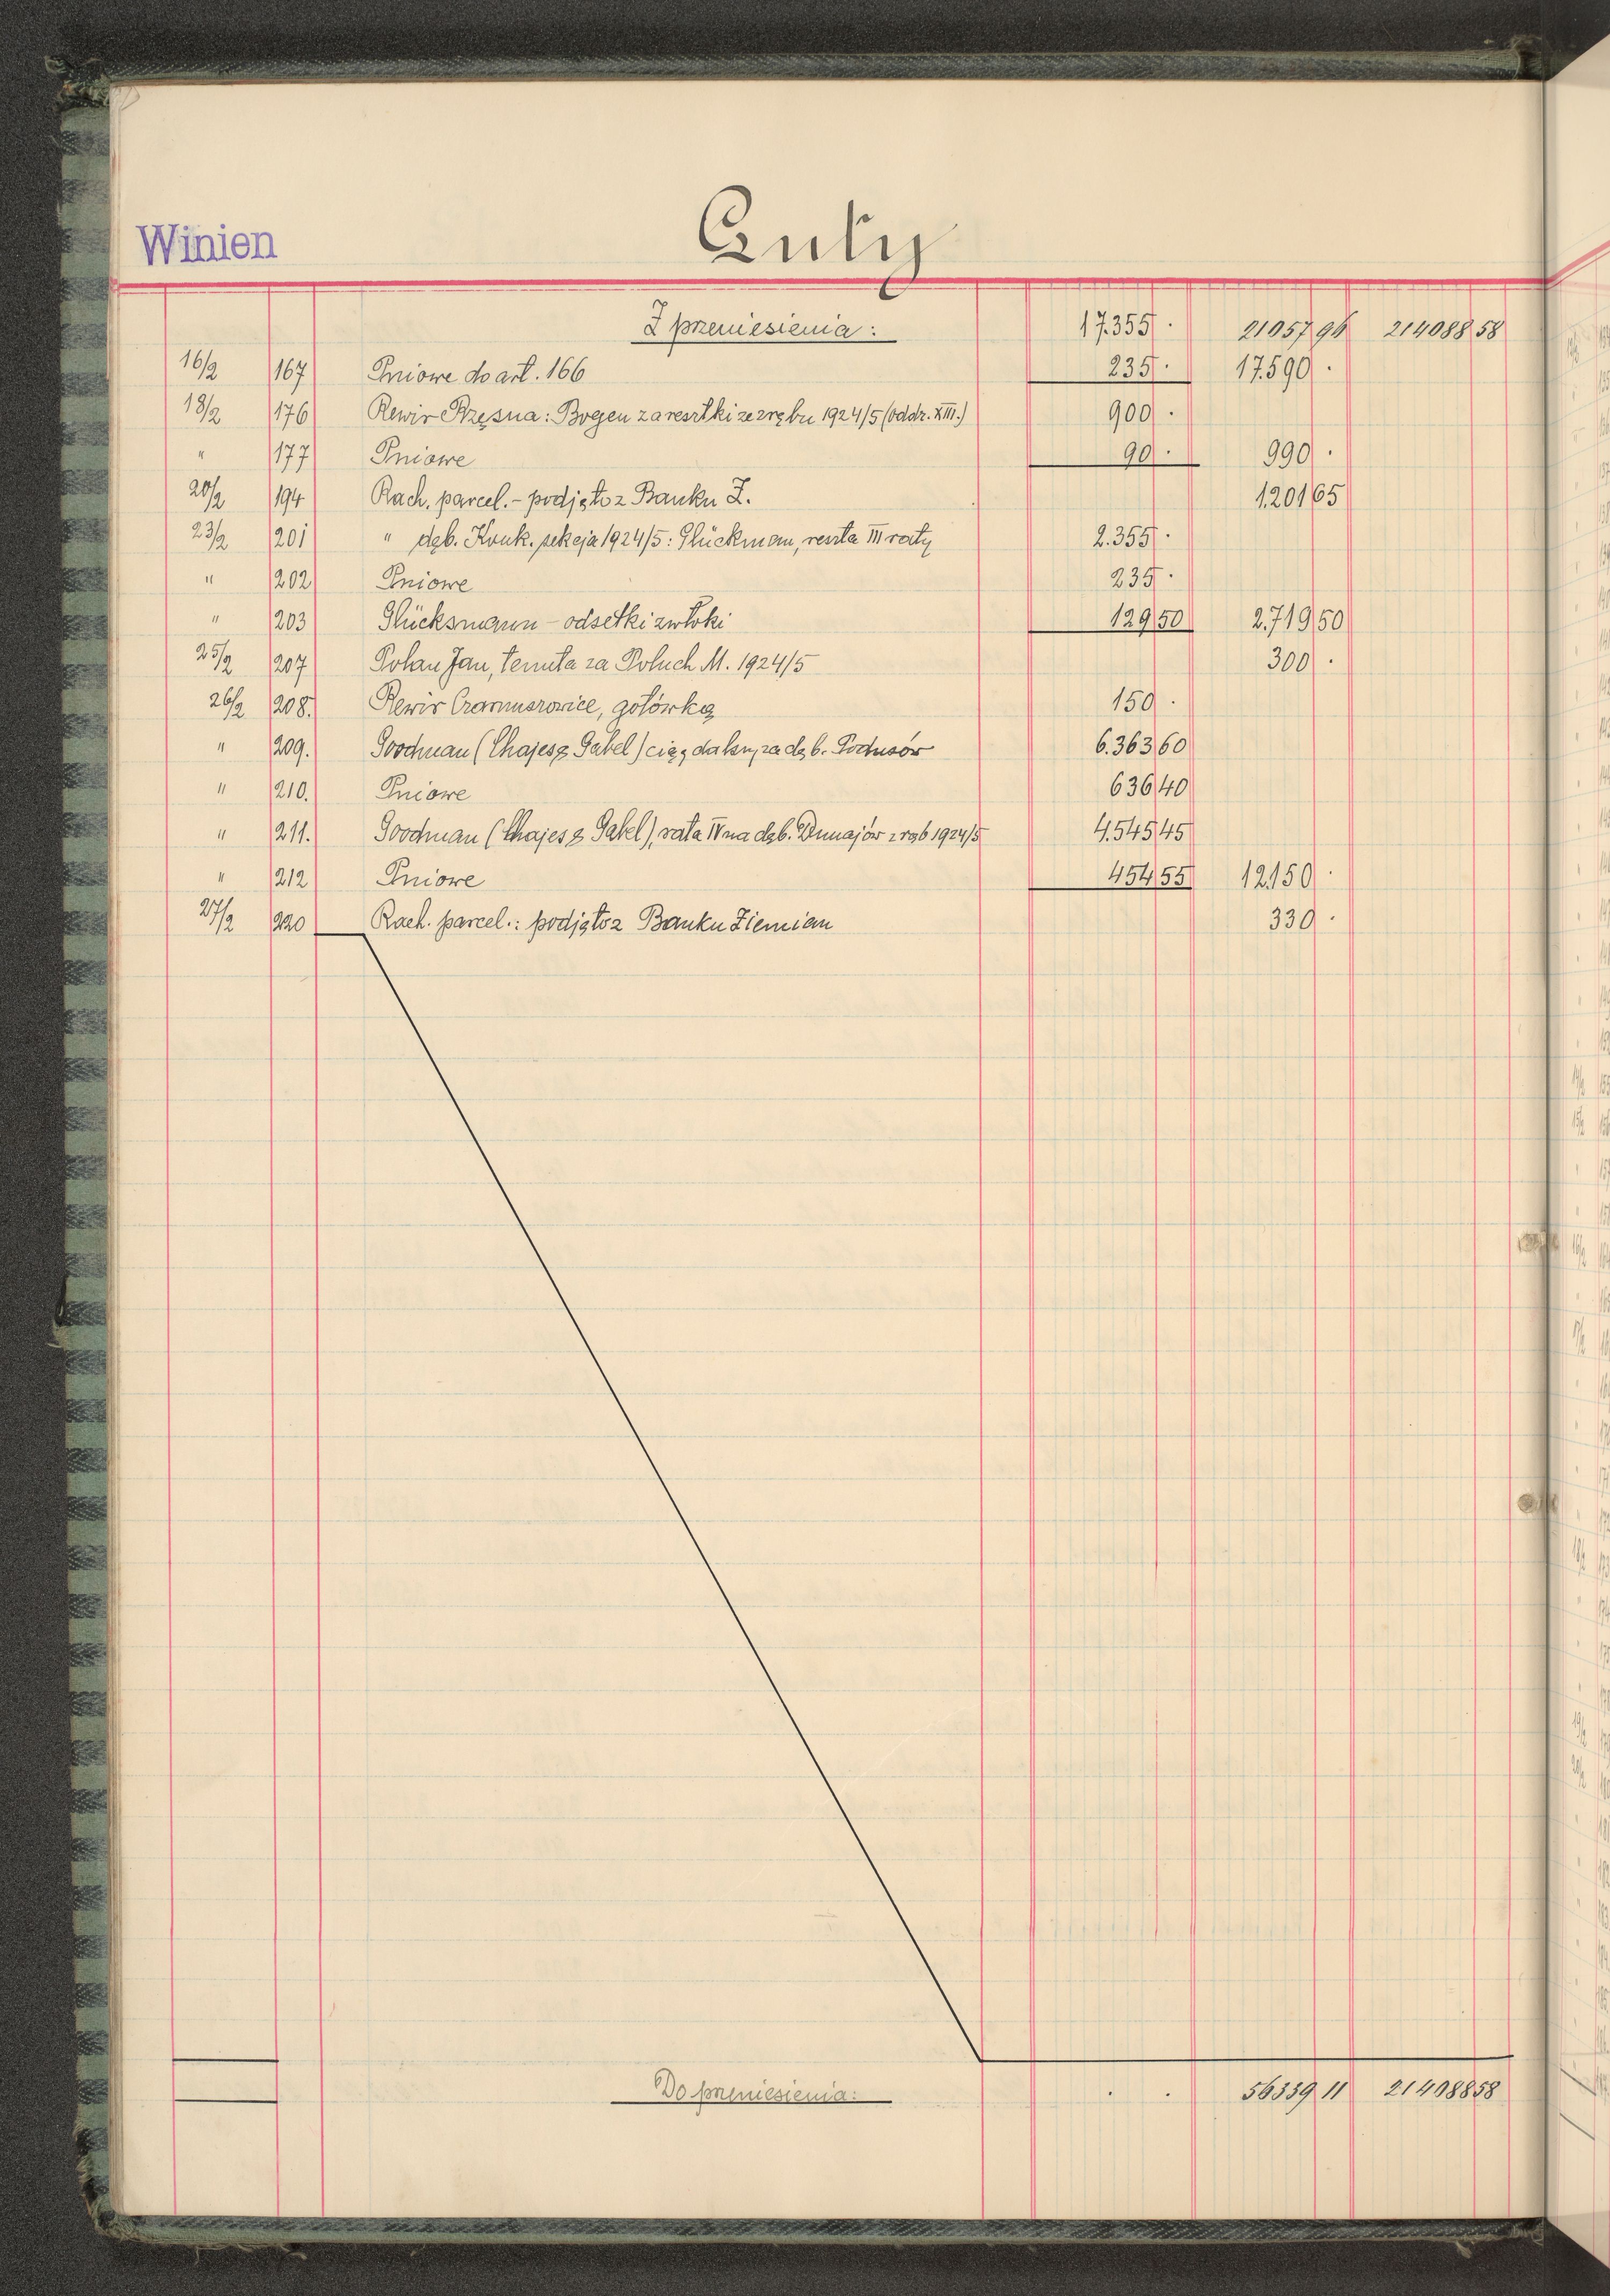 Winien
Luty
Z przeniesienia: 17.355 . 21057 96 214088 58
16/2 167 Pniowe do art. 166 235 . 17.590 .
18/2 176 Rewir Rzęsna: Bogen za resztki ze zrębu 1924/5 (oddz. XIII.) 900 .
" 177 Pniowe 90 . 990 .
20/2 194 Rach. parcel. - podjęto z Banku Z. 1.201 65
23/2 201 " dęb. Konk. sekcja 1924/5: Glückman, reszta III raty 2.355 .
" 202 Pniowe 235 .
" 203 Glücksmann - odsetki zwłoki 129 50 2.719 50
25/2 207 Polan Jan, tenuta za Poluch M. 1924/5 300 .
26/2 208. Rewir gotówką 150 .
" 209. Goodman (Chajes & Gabel) ciąg dalszy za dęb. Podusów 6.363 60
" 210. Pniowe 636 40
" 211. Goodman (Chajes & Gabel), rata IV na dęb. Dunajów zrąb 1924/5 4.545 45
" 212 Pniowe 454 55 12.150 .
27/2 220 Rach. parcel.: podjęto z Banku Ziemian 330 .
Do przeniesienia: . . 56339 11 214088 58